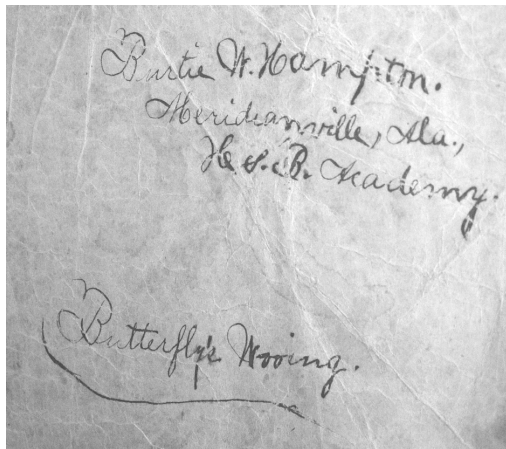 Burtie W. Hampton.
Meridianville, Ala.,
H. S. B. Academy.
Butterfly's Wooing.